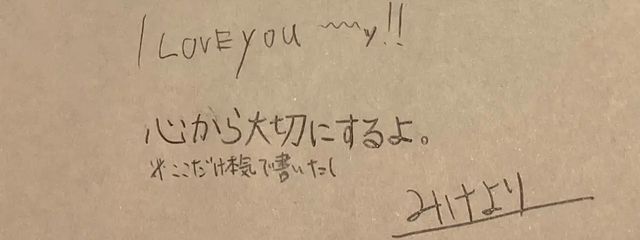 I LOVE you 〰〰y!!
心から大切にするよ。
※ここだけ本気で書いたし
みけより